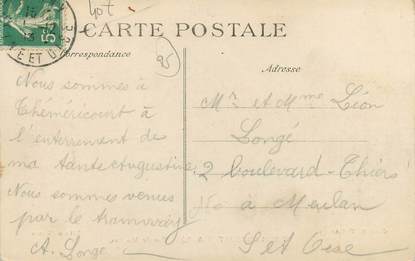 CARTE POSTALE
Correspondance
Adresse
95
Nous sommes à
Théméricourt à
l'enterrement de
ma tante Augustine
Nous sommes venus
par le tramway
A. Longé
Mr et Mme Léon
Longé
2 boulevard-Thiers
à Meulan
S et Oise